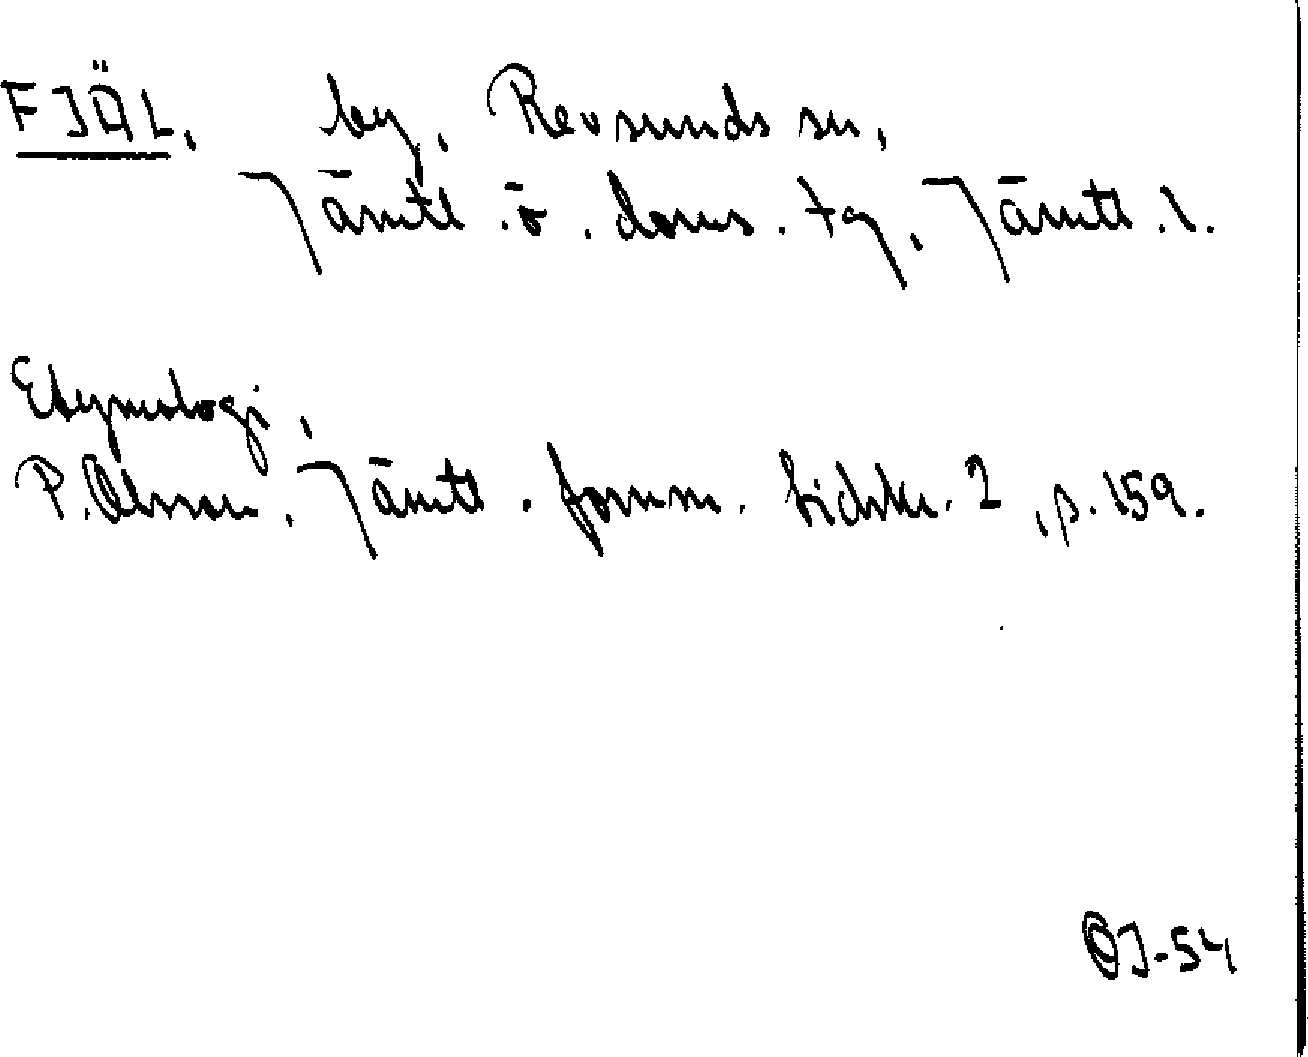 FJÄL, by, Revsunds sn,
Jämtl. ö. doms. tg, Jämtl. l.
Etymologi,
P. Olsson, Jämtl. fornm. tidskr. 2, p. 159.
OJ-54